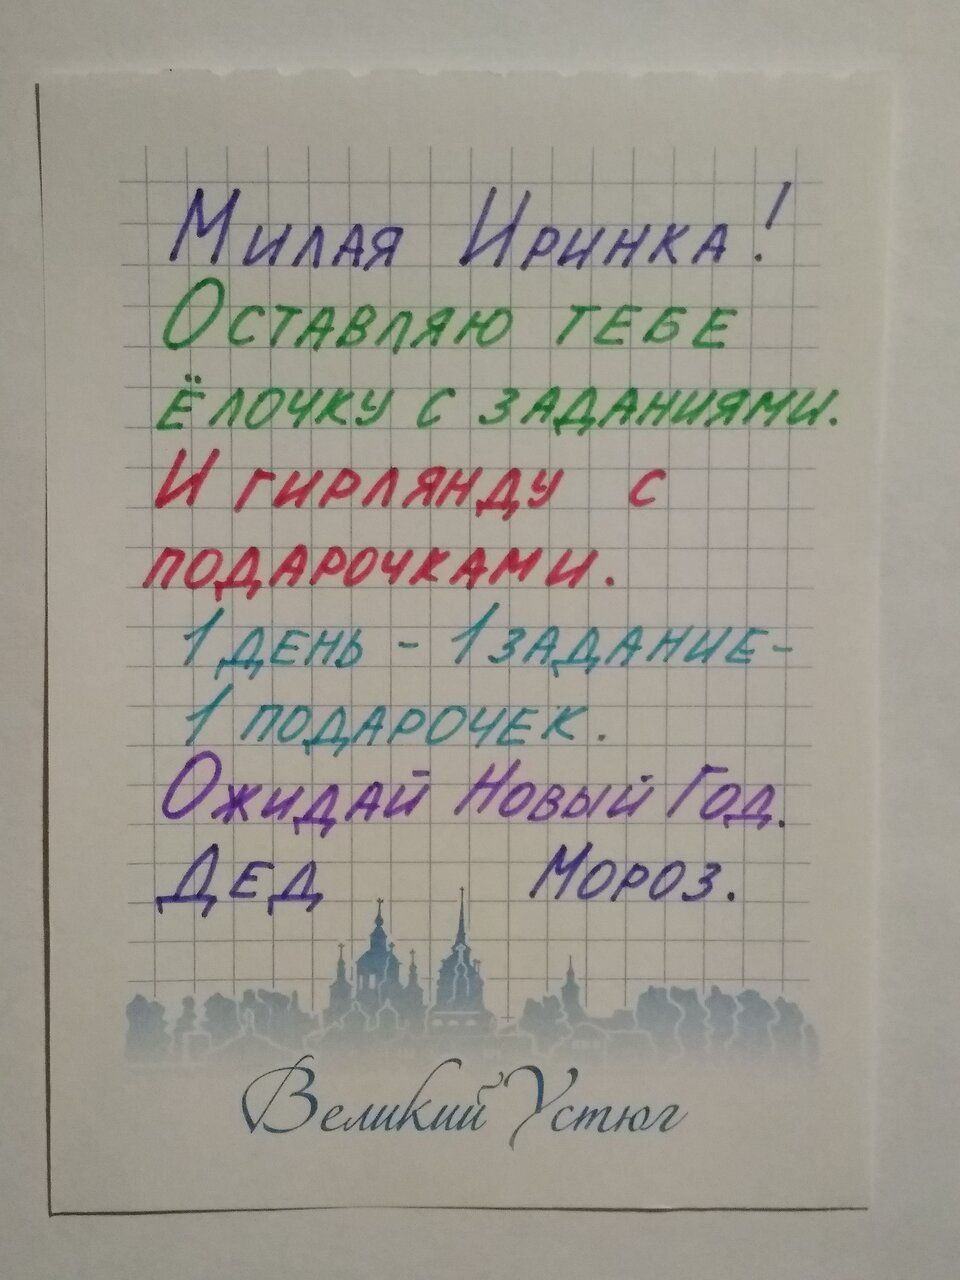 Милая Иринка!
Оставляю тебе
ёлочку с заданиями.
И гирлянду с
подарочками.
1 день - 1 задание-
1 подарочек.
Ожидай Новый Год.
Дед Мороз.
Великий Устюг